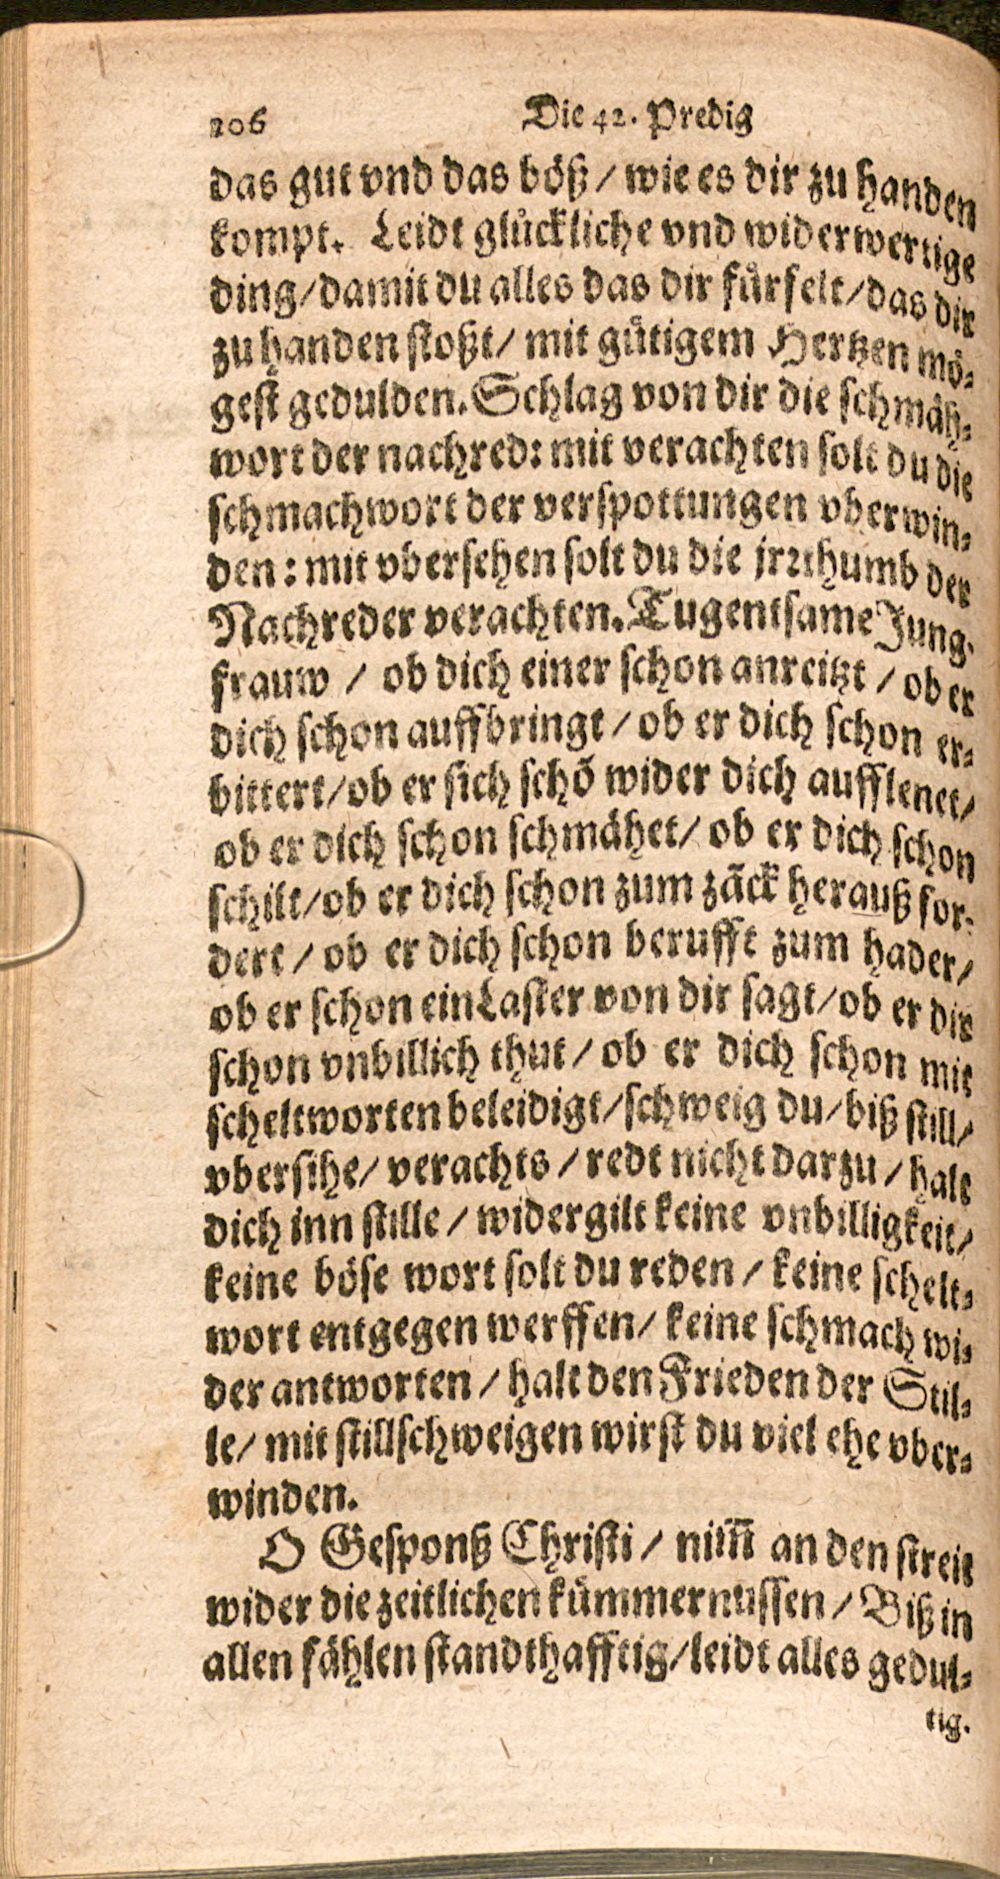 206 Die 42. Predig
das gut vnd das böß / wie es dir zu handen
kompt. Leidt glückliche vnd widerwertige
ding/damit du alles das dir fürfelt/das dir
zu handen stoßt/ mit gütigem Hertzen mö-
gest gedulden. Schlag von dir die schmäh-
wort der nachred: mit verachten solt du die
schmachwort der verspottungen vberwin-
den: mit vbersehen solt du die jrrthumb der
Nachreder verachten. Tugentsame Jung-
frauw / ob dich einer schon anreitzt / ob er
dich schon auffbringt / ob er dich schon er-
bittert/ob er sich schō wider dich aufflenet/
ob er dich schon schmähet/ ob er dich schon
schilt/ob er dich schon zum zäck herauß for-
dert / ob er dich schon berufft zum hader/
ob er schon ein Laster von dir sagt/ob er dir
schon vnbillich thut / ob er dich schon mit
scheltworten beleidigt/schweig du/biß still/
vbersihe/ verachts / redt nicht darzu / halt
dich inn stille / widergilt keine vnbilligkeit/
keine böse wort solt du reden / keine schelt-
wort entgegen werffen/ keine schmach wi-
der antworten / halt den Frieden der Stil-
le/ mit stillschweigen wirst du viel ehe vber-
winden.
O Gesponß Christi / nim̄ an den streit
wider die zeitlichen kümmernussen / Biß in
allen fählen standthafftig/leidt alles gedul-
tig.